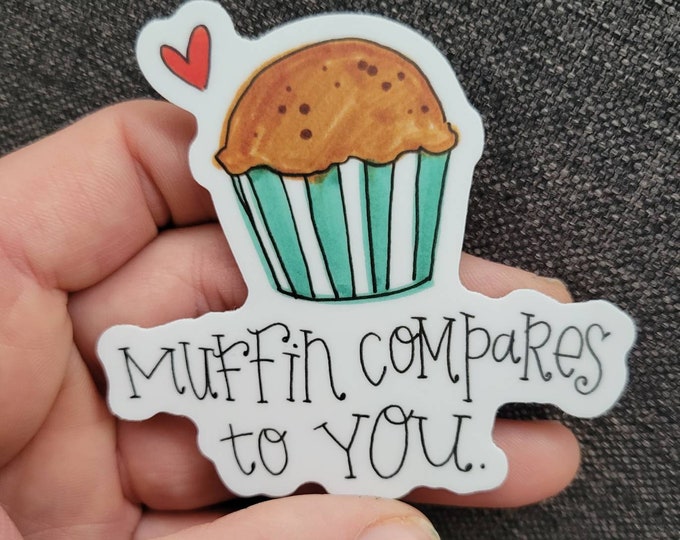 Muffin compares
to you.